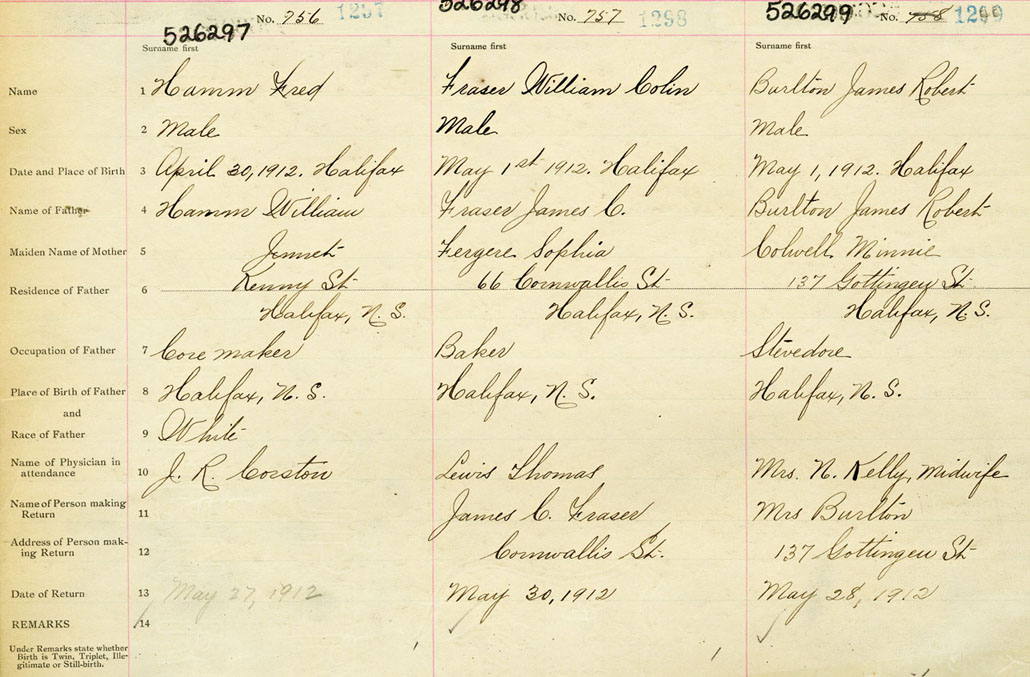 No. 756 1297
526297
526298
No. 757 1298
526299
No. 758 1299
Surname first
Surname first
Surname first
Name 1 Hamm Fred Fraser William Colin Burlton James Robert
Sex 2 Male Male Male
Date and Place of Birth 3 April 30, 1912. Halifax May 1st 1912. Halifax May 1, 1912. Halifax
Name of Father 4 Hamm William Fraser James C. Burlton James Robert
Maiden Name of Mother 5 Jennet Fergere Sophia Colwell Minnie
Residence of Father 6 Kenny St 66 Cornwallis St 137 Gottingen St
Halifax, N. S. Halifax, N. S. Halifax, N. S.
Occupation of Father 7 Core maker Baker Stevedore
Place of Birth of Father 8 Halifax, N. S. Halifax, N. S. Halifax, N. S.
and
Race of Father 9 White
Name of Physician in
attendance 10 J. R. Corston Lewis Thomas Mrs. N. Kelly, Midwife
Name of Person making
Return 11 James C. Fraser Mrs Burlton
Address of Person mak-
ing Return 12 Cornwallis St. 137 Gottingen St
Date of Return 13 May 27, 1912 May 30, 1912 May 28, 1912
REMARKS 14
Under Remarks state whether
Birth is Twin, Triplet, Ille-
gitimate or Still-birth.